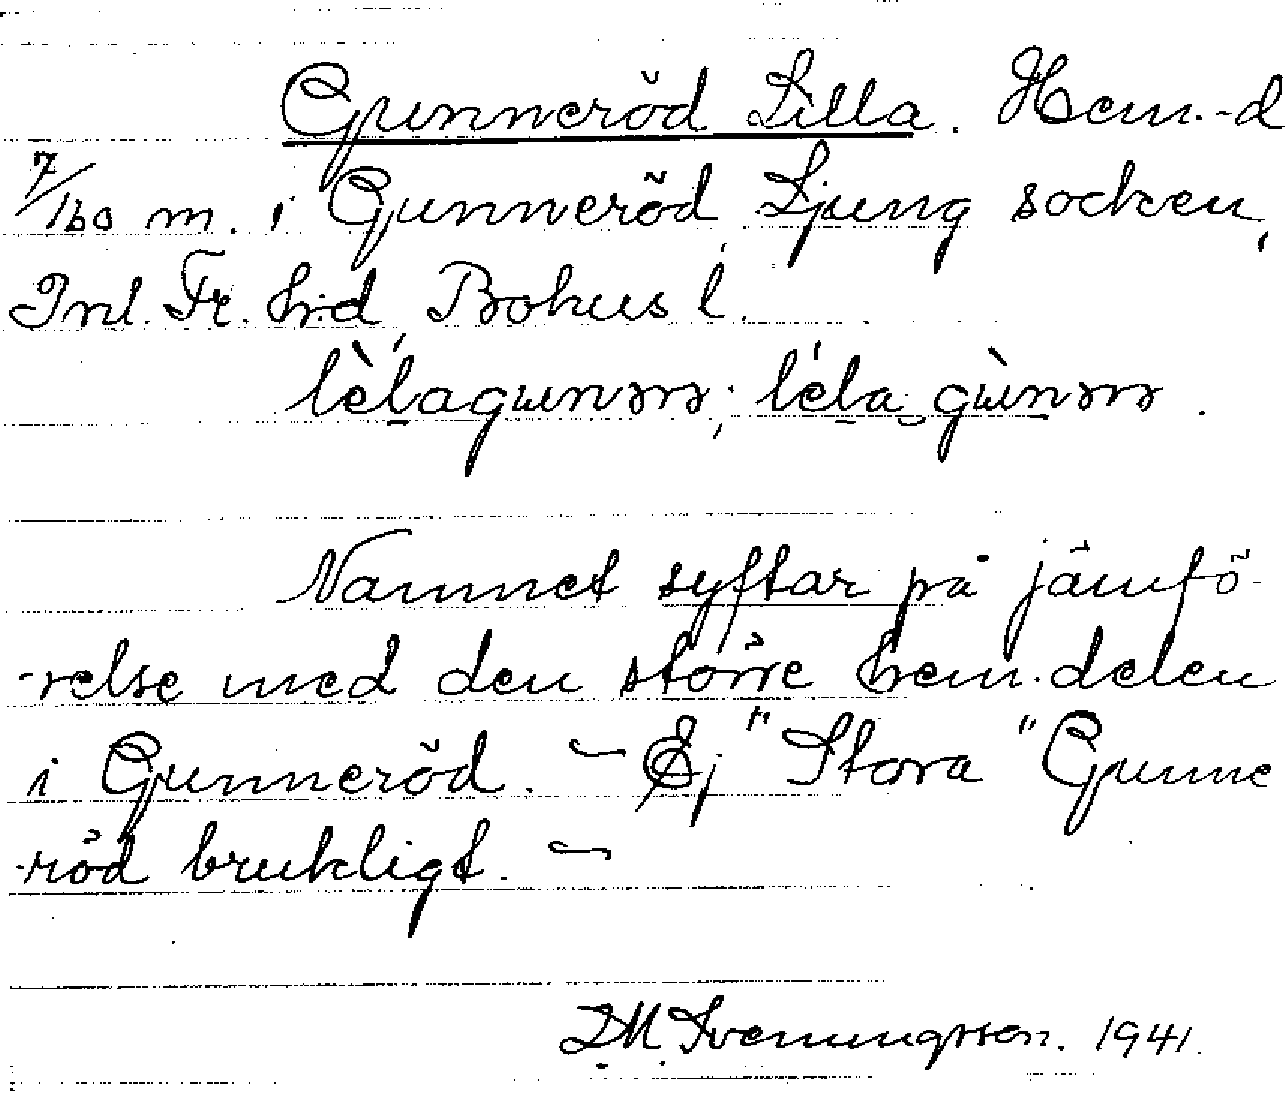 Gunneröd Lilla. Hem.-d
7/160 m. i Gunneröd, Ljung socken,
Inl. Fr. h:d, Bohus l.
Namnet syftar på jämfö-
-relse med den större hem.delen
i Gunneröd. – Ej "Stora" Gunne
-röd brukligt. –
D.M. Svenungsson. 1941.